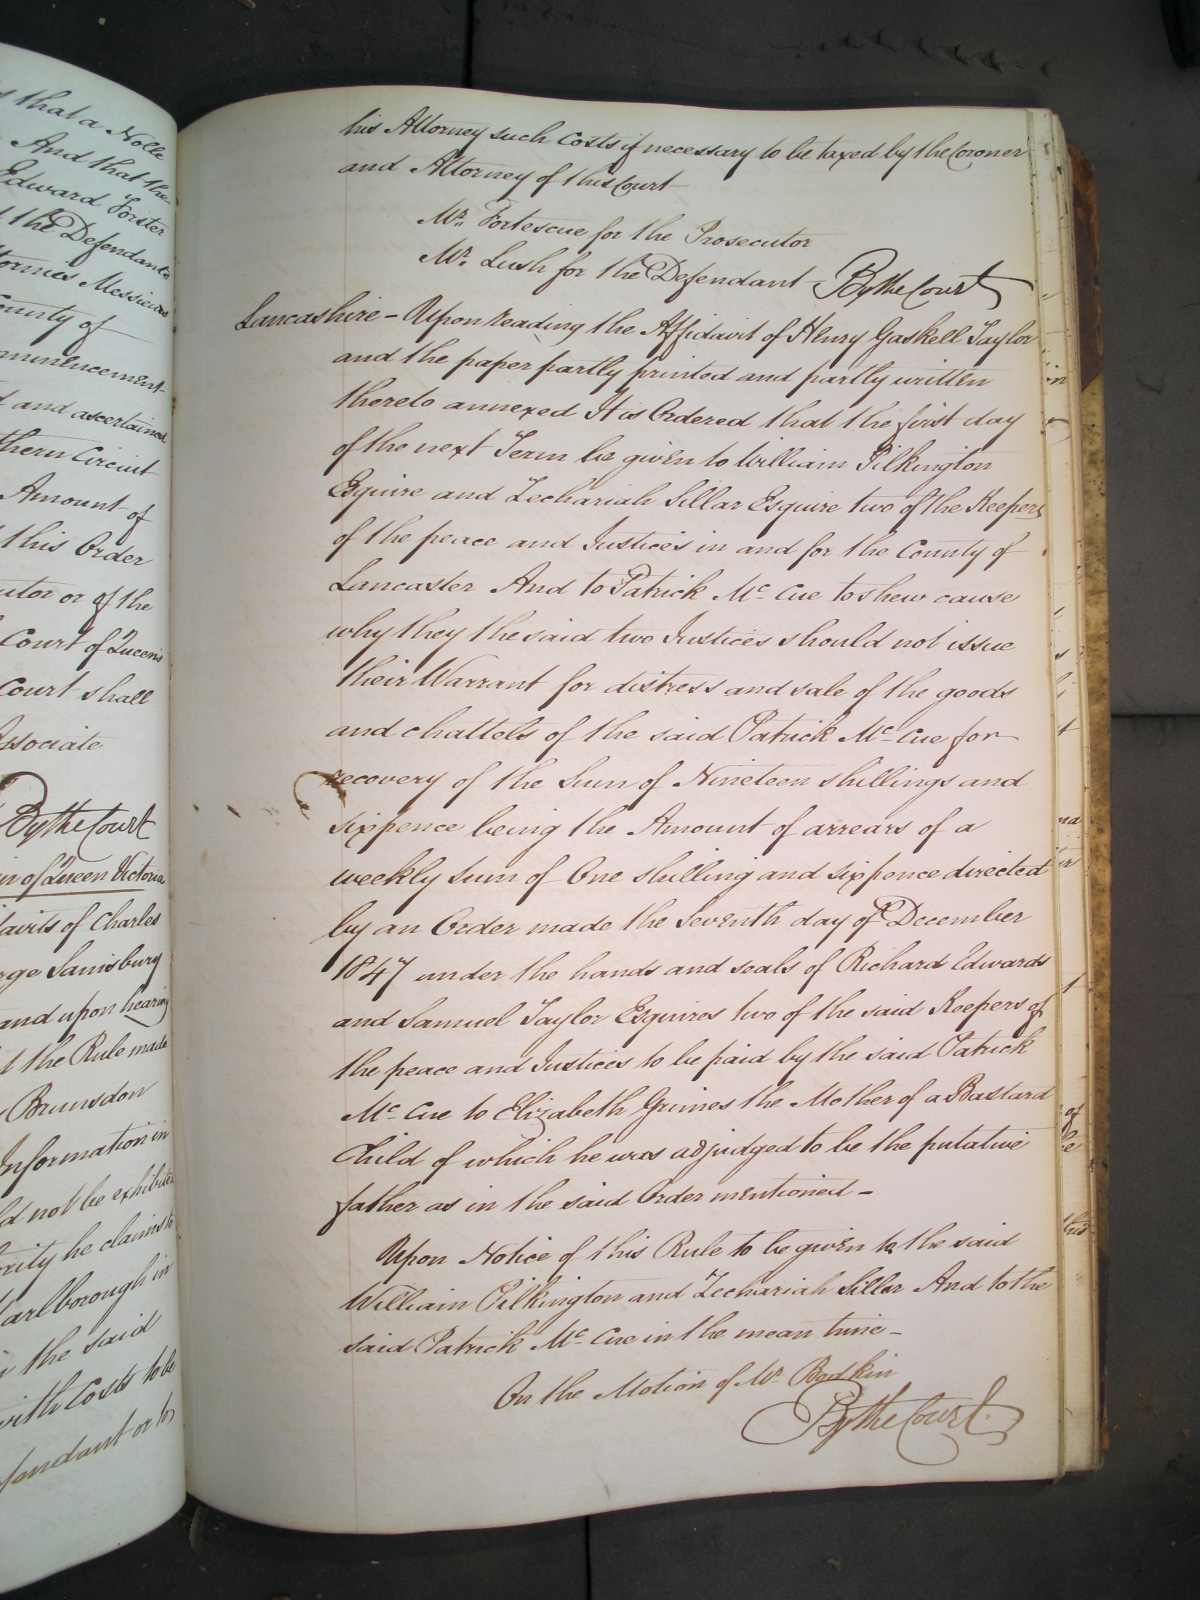 s that a Nolle
And that the
Edward Forster
the Defendants
Messieurs
County of
mmencement
and ascertained
thern Circuit
Amount of
this Order
utor or of the
Court of Queens
Court shall
Associate
By the Court
n of Queen Victoria
davits of Charles
rge Sainsbury
and upon hearing
t the Rule made
Brunsdon
Information in
ld not be exhibited
rity he claims to
arlborough in
the said
with Costs to be
fendant or to
his Attorney such Costs if necessary to be taxed by the Coroner
and Attorney of this Court
Mr. Fortescue for the Prosecutor
Mr. Lush for the Defendant By the Court
Lancashire - Upon reading the Affidavit of Henry Gaskell Taylor
and the paper partly printed and partly written
thereto annexed It is Ordered that the first day
of the next Term be given to William Pilkington
Esquire and Zechariah Sillar Esquire two of the Keepers
of the peace and Justices in and for the County of
Lancaster And to Patrick Mc. Cue to shew cause
why they the said two Justices should not issue
their Warrant for distress and sale of the goods
and chattels of the said Patrick Mc. Cue for
recovery of the Sum of Nineteen shillings and
sixpence being the Amount of arrears of a
weekly sum of One shilling and sixpence directed
by an Order made the seventh day of December
1847 under the hands and seals of Richard Edwards
and Samuel Taylor Esquires two of the said Keepers of
the peace and Justices to be paid by the said Patrick
Mc. Cue to Elizabeth Grimes the Mother of a Bastard
Child of which he was adjudged to be the putative
father as in the said Order mentioned -
Upon Notice of this Rule to be given to the said
William Pilkington and Zechariah Sillar And to the
said Patrick Mc. Cue in the mean time -
On the Motion of Mr. Bodkin
By the Court.